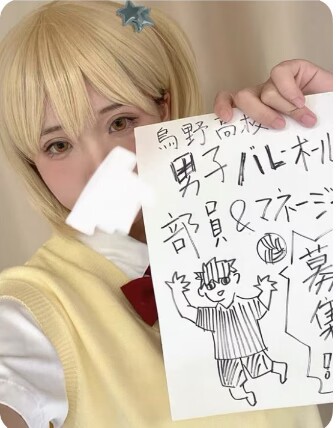 烏野高校
男子バレーボール
部員&マネージ
募集!